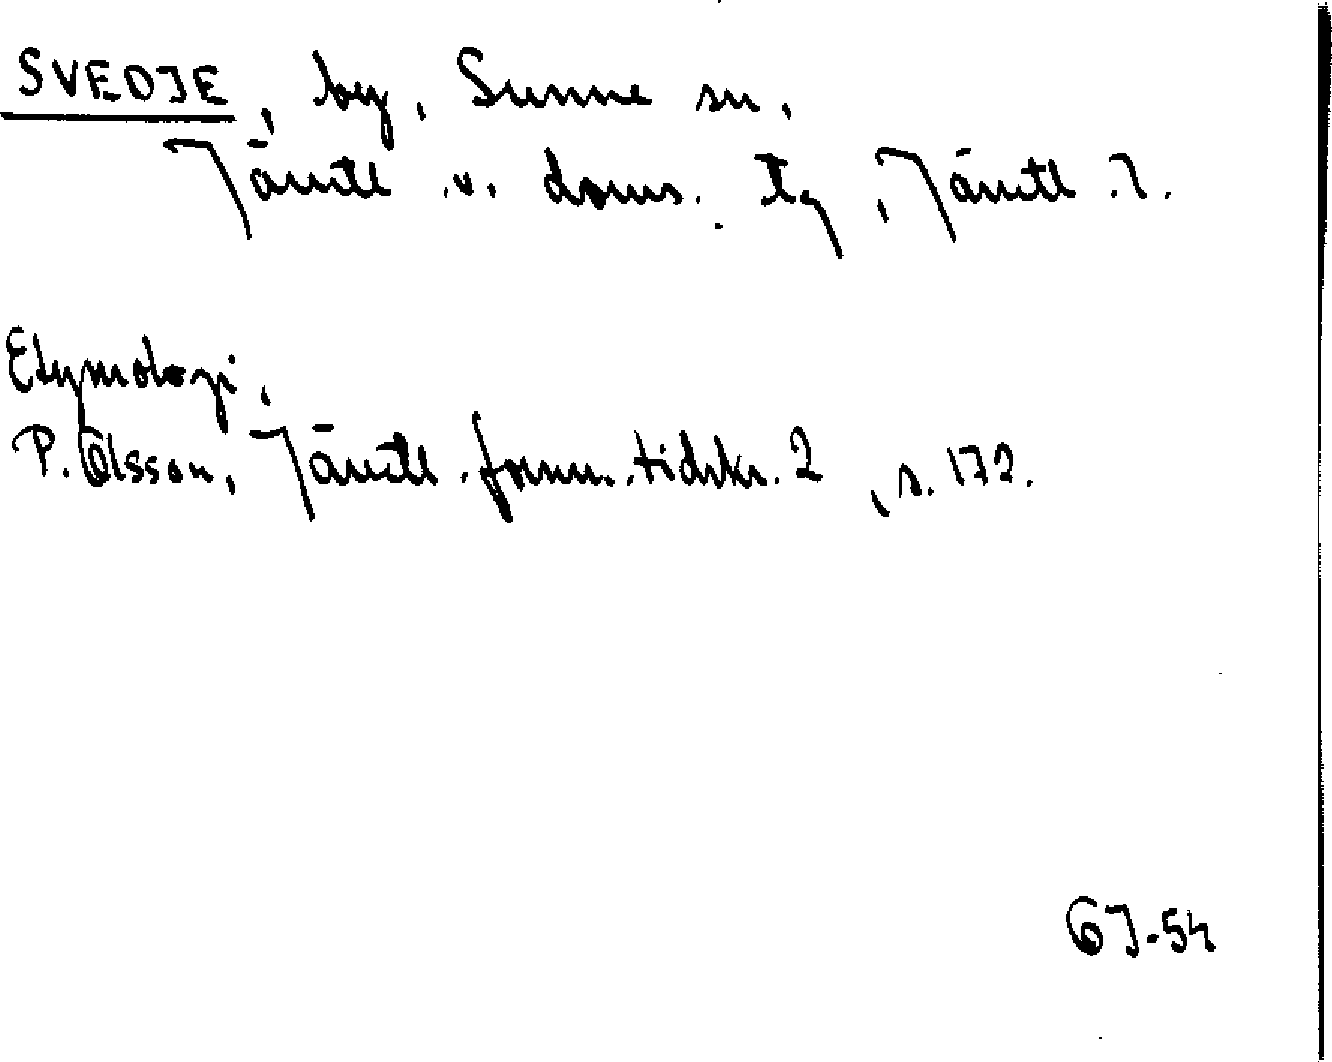 SVEDJE, by, Sunne sn,
Jämtl. v. doms. tg, Jämtl. l.
Etymologi.
P. Olsson, Jämtl. fornm. tidskr. 2, s. 172.
GJ-54